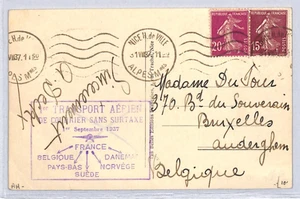 NICE H. DE VILLE
ALPES MMES
20c
15c
Sincèrement
1er TRANSPORT AÉRIEN
DE COURRIER SANS SURTAXE
1er Septembre 1937
FRANCE
BELGIQUE
PAYS-BAS NORVÈGE
SUÈDE
Madame Du Four
370. Bd du Souverain
Bruxelles
Auderghem
Belgique